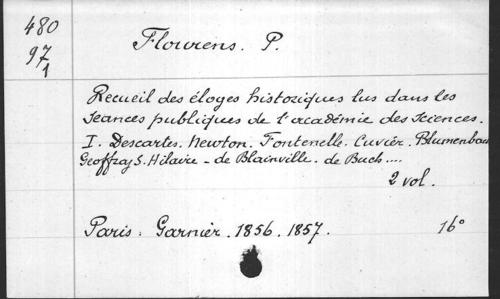 480
97
1
Flourens. P.
Recueil des éloges historiques lus dans les
séances publiques de l'académie des sciences.
I. Descartes. Newton. Fontenelle. Cuvier. Blumenbac
Geoffray S. Hilaire - de Blainville. de Buch....
2 vol.
Paris: Garnier. 1856. 1857. 16°